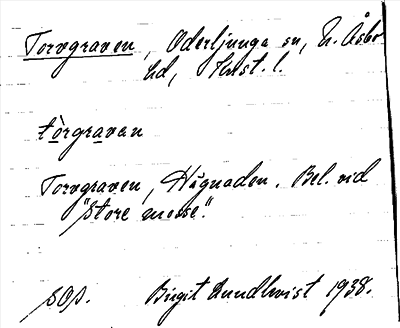 Torvgraven, Oderljunga sn, N. Åsbo
hd, Krist. l.
tòrgravan
Torvgraven, Hägnaden. Bel. vid
"Store mosse".
SOD. Birgit Lundkvist 1938.